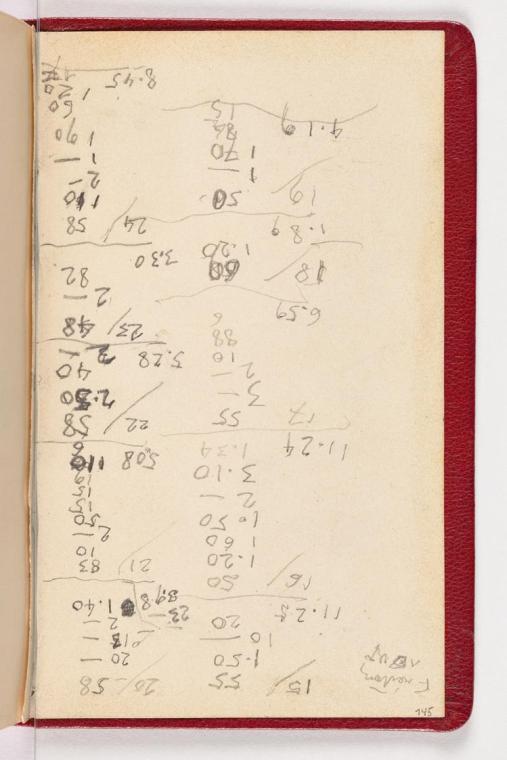 Freitag
15/ 55
1.50
10 —
20
11.25
16/ 50
1.20
1 60
1.50
2 —
3.10
1.34
11.24
17/ 55
3 —
2 —
10
88
6
6.59
18/ 60
1.20
1.89
19/ 50
1 —
1 70
84
15
4.19
20/ —.58
20 —
—.13
2 —
1.40
23 —
21/ 83
10
2 —
50
15
15
19
110
508
22/ 58
2.30
40
2 —
5.28
23/ 48
2 —
82
3.30
24/ 58
1 10
2 —
1 —
1 90
60
1 20
8.45
145